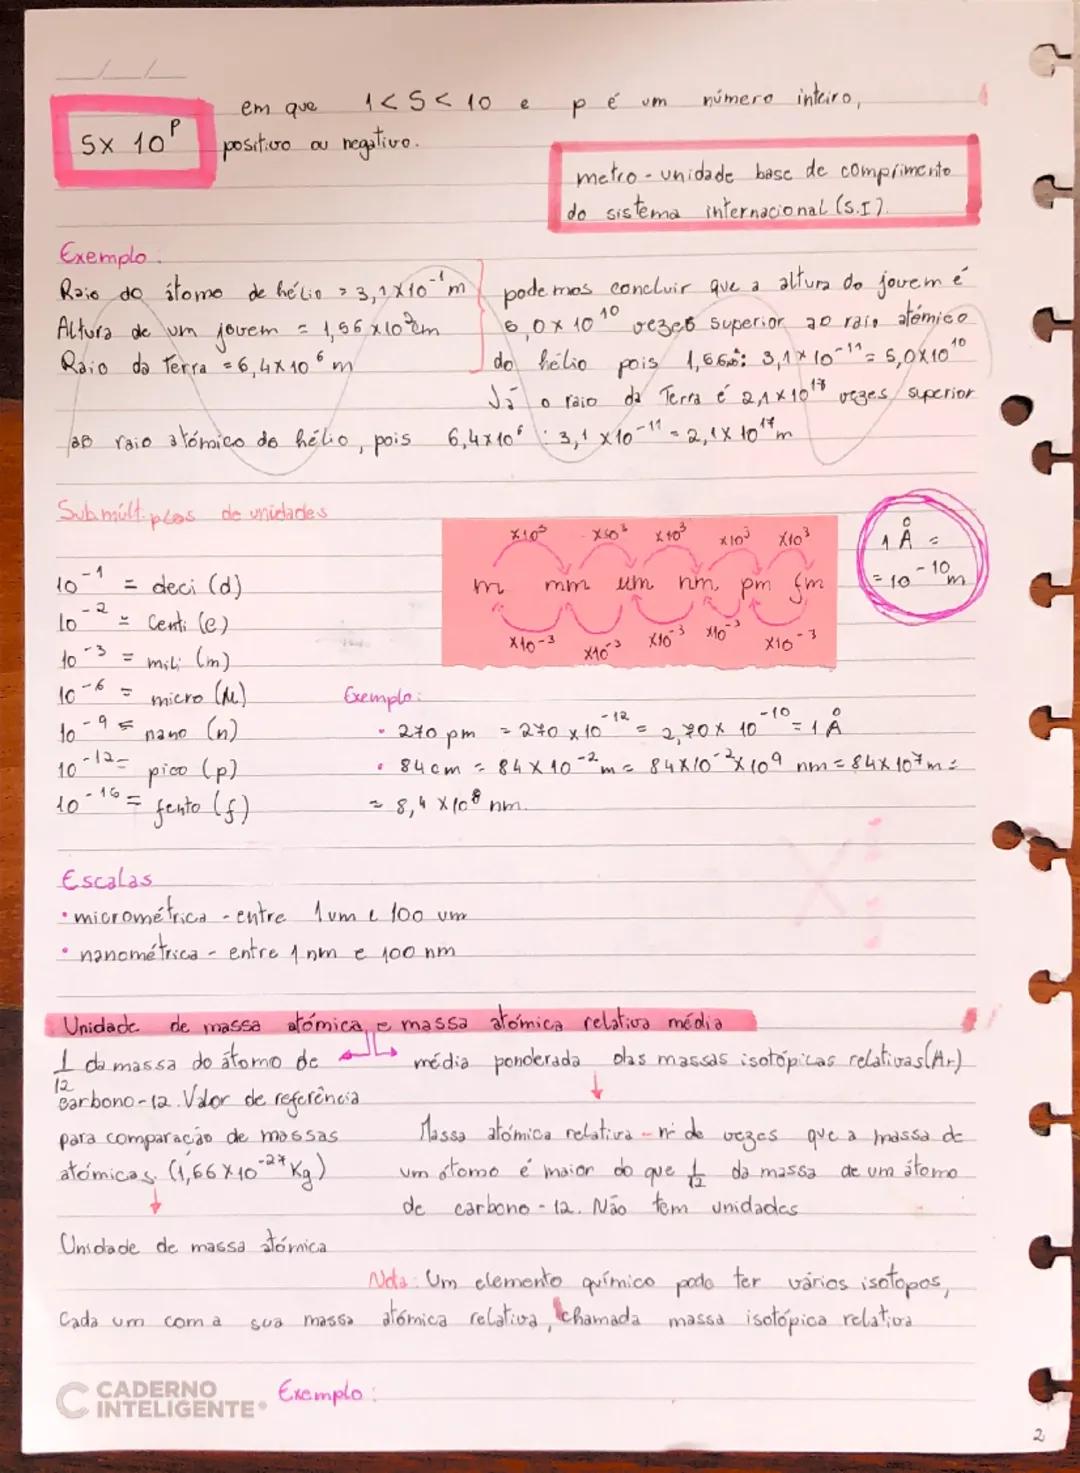 em que 1 < S < 10 e p é um número inteiro,
S x 10^P positivo ou negativo.
metro - unidade base de comprimento
do sistema internacional (S.I).
Exemplo:
Raio do átomo de hélio = 3,1 x 10^-1 m
Altura de um jovem = 1,56 x 10^2 cm
Raio da Terra = 6,4 x 10^6 m
podemos concluir que a altura do jovem é
5,0 x 10^10 vezes superior ao raio atómico
do hélio pois 1,56 : 3,1 x 10^-11 = 5,0 x 10^10
Já o raio da Terra é 2,1 x 10^17 vezes superior
ao raio atómico do hélio, pois 6,4 x 10^6 : 3,1 x 10^-11 = 2,1 x 10^17 m
Submúltiplos de unidades
10^-1 = deci (d)
10^-2 = Centi (c)
10^-3 = mili (m)
10^-6 = micro (M)
10^-9 = nano (n)
10^-12 = pico (p)
10^-16 = fento (f)
x10^3 x10^3 x10^3 x10^3 x10^3
m mm um nm pm fm
x10^-3 x10^-3 x10^-3 x10^-3 x10^-3
1 Å =
= 10^-10 m
Exemplo:
• 270 pm = 270 x 10^-12 = 2,70 x 10^-10 = 1 Å
• 84 cm = 84 x 10^-2 m = 84 x 10^-2 x 10^9 nm = 84 x 10^7 m =
= 8,4 x 10^8 nm.
Escalas
• micrométrica - entre 1 um e 100 um
• nanométrica - entre 1 nm e 100 nm
Unidade de massa atómica e massa atómica relativa média
1/12 da massa do átomo de
carbono-12. Valor de referência
para comparação de massas
atómicas. (1,66 x 10^-27 Kg)
Unidade de massa atómica
média ponderada das massas isotópicas relativas (Ar)
Massa atómica relativa - nº de vezes que a massa de
um átomo é maior do que 1/12 da massa de um átomo
de carbono - 12. Não tem unidades
Nota: Um elemento químico pode ter vários isótopos,
Cada um com a sua massa atómica relativa, chamada massa isotópica relativa
Exemplo:
CADERNO
INTELIGENTE®
2